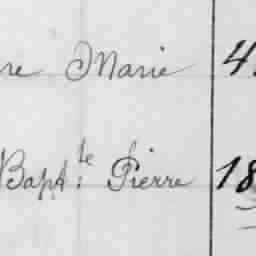 re Marie 4
Bapt.te Pierre 18